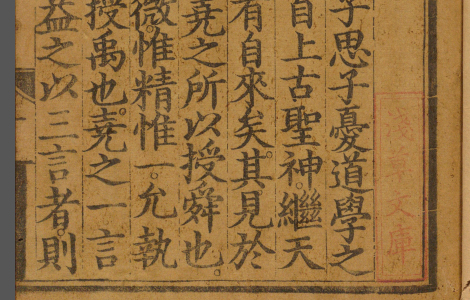 子思子憂道學之
自上古聖神繼天
有自來矣其見於
堯之所以授舜也
微惟精惟一允執
授禹也堯之一言
益之以三言者則
文庫